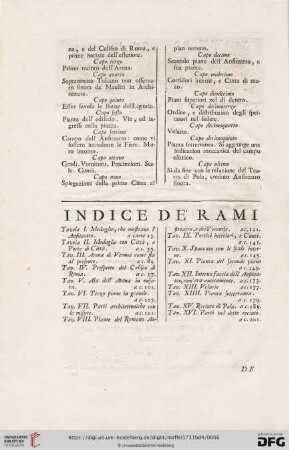 no, e del Colisеo di Roma, e
prime notizie dell'esteriore.
Capo terzo
Primo recinto dell'Arena.
Capo quarto
Soprornato Toscano non osservato
finora da' Maestri in Architettura.
Capo quinto
Esser favola le Stampe del Ligorio.
Capo sesto
Pianta dell'edifizio. Vie, ed ingressi nella piazza.
Capo settimo
Campo dell'Anfiteatro: come vi
fossero introdotte le Fiere. Muro intorno.
Capo ottavo
Gradi. Vomitorii. Precinzioni. Scale. Cunei.
Capo nono
Spiegazione della prima Cinta al
pian terreno.
Capo decimo
Secondo piano dell'Anfiteatro, e
sua pianta.
Capo undecimo
Corridori interni, e Cinta di mezzo.
Capo duodecimo
Piani superiori nel di dentro.
Capo decimoterzo
Ordine, e distribuzion degli spettatori nel sedere.
Capo decimoquarto
Velario.
Capo decimoquinto
Pianta sotterranea. Si aggiunge una
indicazion meccanica del campo
ellittico.
Capo ultimo
Si dà fine con la relazione del Teatro di Pola, creduto Anfiteatro
finora.
INDICE DE' RAMI
Tavola I. Medaglie, che mostrano l'
Anfiteatro. a carte 13.
Tavola II. Medaglie con Città, e
Porte di Città. a c. 33.
Tav. III. Arena di Verona come sta
al presente. a c. 89.
Tav. IV. Prospetto del Coliseo di
Roma. a c. 97.
Tav. V. Ala dell'Arena in misure. a c. 101.
Tav. VI. Terzo piano in grande.
a c. 107.
Tav. VII. Parti architettoniche con
le misure. a c. 121.
Tav. VIII. Piante del Romano Anfiteatro, e del Veronese. a c. 121.
Tav. IX. Portici interiori, e Cunei.
Tav. X. Spaccato con le scale interne.
Tav. XI. Pianta del secondo piano
a c. 149.
Tav. XII. Interna faccia dell'Anfiteatro, com'era anticamente. a c. 173.
Tav. XIII. Velario a c. 177.
Tav. XIIII. Pianta sotterranea.
a c. 179.
Tav. XV. Recinto di Pola. a c. 189.
Tav. XVI. Parti nel detto recinto.
a c. 201.
DE
https://digi.ub.uni-heidelberg.de/diglit/maffei1731bd4/0006
© Universitätsbibliothek Heidelberg
UNIVERSITÄTS-
BIBLIOTHEK
HEIDELBERG
gefördert durch die
DFG